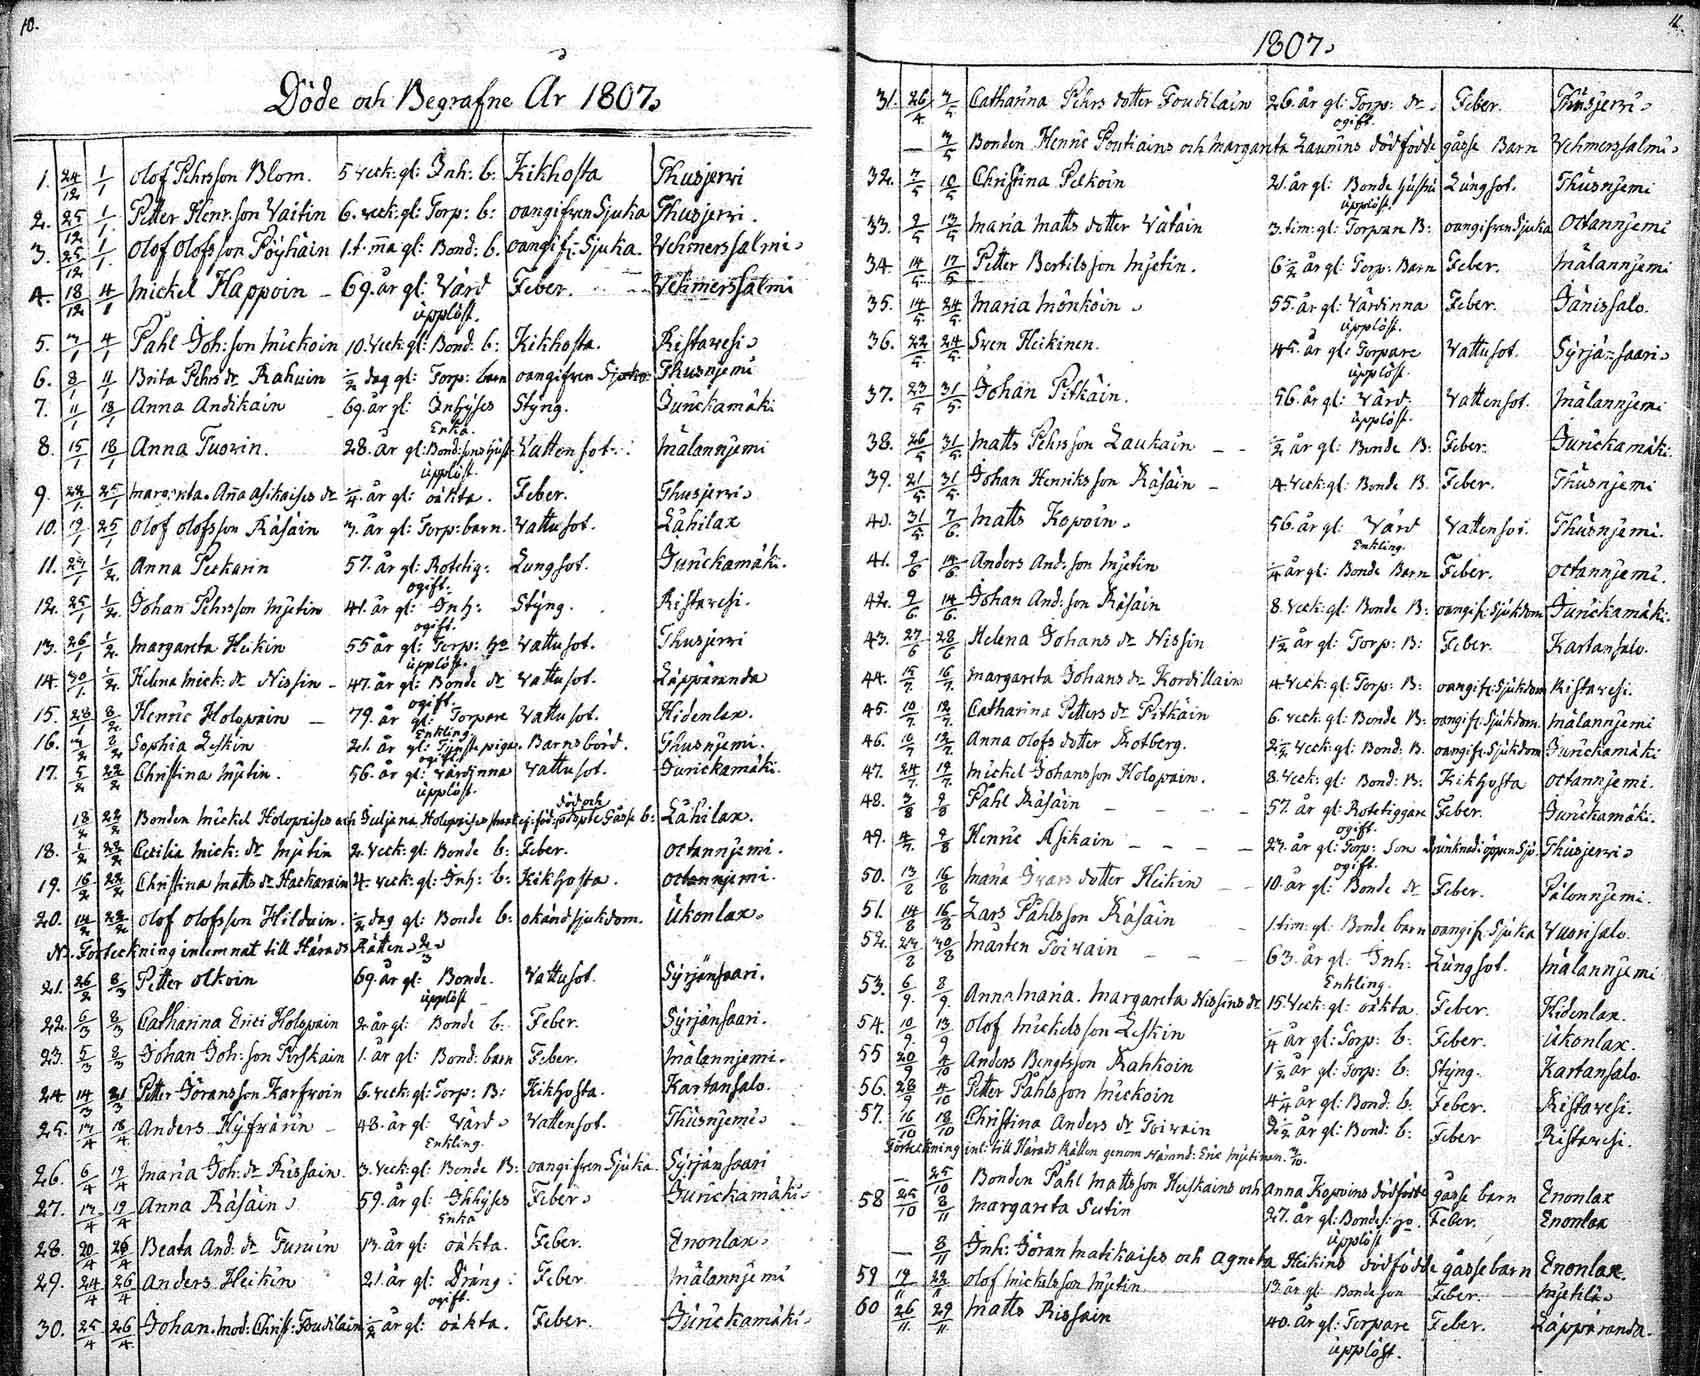 10.
Döde och Begrafne År 1807.
1. 24/12 1/1 Olof Pehrsson Blom. 5 veck: gl: Inh: b: Kikhosta Thusjerwi
2. 25/12 1/1. Petter Henr.son Vaitin 6. veck: gl: Torp: b: oangifven Sjuka Thusjerwi.
3. 25/12 1/1. Olof Olofsson Pöyhäin 1.t. m̄a gl: Bond. b. oangif: Sjuka. Vehmersalmi.
4. 18/12 4/1 Mickel Happoin 69. år gl: Värd Feber. Vehmersalmi
upplöst.
5. 3/1 4/1 Påhl Joh: son Mickoin 10. veck: gl: Bond: b: Kikhosta. Ristavesi.
6. 8/1 11/1 Brita Pehrs dr Rahuin ½ dag gl: Torp: barn oangifven Sjuka Thusnjemi
7. 11/1 18/1 Anna Andikain 69. år gl: Inhyses Styng. Jurickamäki
Enka.
8. 15/1 18/1 Anna Tuovin. 28. år gl: Bond: sons hust: Vattensot. Mälannjemi
upplöst.
9. 22/1 25/1 Margreta. Aña Asikaises dr ¼. år gl: oäkta. Feber. Thusjerwi.
10. 19/1 25/1 Olof Olofsson Räsäin 3. år gl: Torp: barn. Vattusot. Lähilax
11. 29/1 1/2. Anna Peckarin 57. år gl: Rotetig: Lungsot. Jurickamäki.
ogift.
12. 25/1 1/2. Johan Pehrsson Mjetin 41. år gl: Inh: Styng. Ristavesi.
ogift.
13. 26/1 1/2. Margareta Heikin 55 år gl: Torp: ho Vattusot. Thusjerwi
upplöst.
14. 30/1. 1/2. Helena Mick: dr Nissin 47. år gl: Bonde dr Vattusot. Läppäranda
ogift.
15. 28/1 8/2 Henric Holopain 79. år gl: Torpare Vattusot. Hidenlax.
Enkling
16. 3/2 8/2 Sophia Leskin 21. år gl: Tjenste piga. Barnsbörd. Thusnjemi.
ogift.
17. 5/2 22/2 Christina Mjetin. 56. år gl: Värdinna Vattusot. Jurickamäki.
upplöst.
18/2 22/2 Bonden Mickel Holopaises och Juliana Holopaises Gåsse b: Lähilax.
18. 1/2 22/2 Cecilia Mick: dr Mjetin 2. veck: gl: Bonde b: Feber. Octannjemi.
19. 16/2 22/2 Christina Matts dr Hackarain 4. veck: gl: Inh: b: Kikhosta. Octannjemi.
20. 14/2 22/2 Olof Olofsson Hilduin. ½ dag gl: Bonde b: okänd sjukdom. Ukonlax.
N. Förteckning inlemnat till Härads Rätten 2/3
21. 26/2 8/3 Petter Olkoin 69. år gl: Bonde. Vattusot. Syrjänsaari.
upplöst
22. 6/3 8/3 Catharina Erici Holopain 2. år gl: Bonde b: Feber. Syrjänsaari.
23. 5/3 8/3 Johan Joh: son Pirskain 1. år gl: Bond: barn Feber. Mälannjemi.
24 14/3 21/3 Petter Göransson Karfvoin 6. veck: gl: Torp: B: Kikhosta. Kartansalo.
25. 17/4 18/4. Anders Hyfvärin 48. år gl Värd. Vattensot. Thusnjemi.
Enkling.
26. 6/4 19/4 Maria Joh: dr Rissain. 3. veck: gl: Bonde B: oangifven Sjuka. Syrjänsaari
27. 17/4 19/4 Anna Räsäin 59. år gl: Inhyses Feber. Jurickamäki.
Enka
28. 20/4 26/4 Beata And: dr Turuin 13. år gl: oäkta. Feber. Enonlax.
29. 24/4 26/4 Anders Heikin 21. år gl: Dräng: Feber. Mälannjemi
ogift.
30. 25/4 26/4 Johan. mod: Christ: Foudilain ½ år gl: oäkta. Feber. Jurickamäki.
11.
1807.
31. 26/4 3/5 Catharina Pehrs dotter Foudilain 26. år gl: Torp: dr. Feber. Thusjerwi.
ogift.
— 3/5 Bonden Henric Poutiains och Margareta Laurins dödfödde gåsse Barn Vehmersalmi.
32. 7/5 10/5 Christina Pelkoin 21. år gl: Bonde hustru Lungsot. Thusnjemi
upplöst.
33. 9/5 17/5 Maria Matts dotter Vätäin 3. tim: gl: Torpare B: oangifven Sjuka Octannjemi
34. 14/5 17/5 Petter Bertilsson Mjetin. 6½ år gl: Torp: Barn Feber. Mälannjemi
35. 14/5 24/5. Maria Mönköin. 55. år gl: Värdinna Feber. Jänissalo.
upplöst.
36. 22/5 24/5 Sven Heikinen. 45. år gl: Torpare Vattusot. Syrjänsaari.
upplöst.
37. 23/5 31/5. Johan Pitkäin. 56. år gl: Värd. Vattensot. Mälannjemi
upplöst.
38. 26/5 31/5. Matts Pehrsson Laukain ½ år gl: Bonde B: Feber. Jurickamäki.
39. 21/5 31/5. Johan Henriksson Räsäin 4. veck: gl: Bonde B. Feber. Thusnjemi
40. 31/5 7/6. Matts Kopoin. 56. år gl: Värd Vattensot. Thusnjemi.
Enkling.
41. 9/6 14/6. Anders And: son Mjetin ¼ år gl: Bonde Barn Feber. Octannjemi.
42. 9/6. 14/6. Johan And: son Räsäin 8. veck: gl: Bonde B: oangif: Sjukdom Jurickamäki.
43. 27/6 28/6 Helena Johans dr Nissin 1½ år gl: Torp: B: Feber. Kartansalo.
44. 15/7. 16/7. Margareta Johans dr Kordillain 4. veck: gl: Torp: B: oangif: Sjukdom Ristavesi.
45. 10/7. 12/7. Catharina Petters dr Pitkäin 6. veck: gl: Bonde B: oangif: Sjukdom. Mälannjemi
46. 10/7 12/7. Anna Olofs dotter Rotberg. 2½ veck: gl: Bond: B. oangif: Sjukdom Jurickamäki
47. 24/7. 19/7. Mickel Johansson Holopain. 8. veck: gl: Bond: B: Kikhosta Octannjemi.
48. 3/8 9/8 Påhl Räsäin 57. år gl: Rotetiggare Feber. Jurickamäki.
ogift.
49. 4/7. 9/8 Henric Asikain 27. år gl: Torp: Son drunknad i öppen Sjö. Thusjerwi.
ogift.
50. 13/8 16/8 Maria Ivars dotter Heikin 10. år gl: Bonde dr Feber. Pälonnjemi.
51. 14/8 16/8 Lars Påhlsson Räsäin 1. tim: gl: Bonde barn oangif: Sjuka Vuorisalo.
52. 27/8 30/8 Mårten Toivain 63. år gl: Inh: Lungsot. Mälannjemi
Enkling.
53. 6/9. 8/9. Anna Maria. Margareta Nissins dr 15. veck: gl: oäkta. Feber. Hidenlax.
54. 10/9. 13/9 Olof Mickelsson Leskin ¼ år gl: Torp: b: Feber. Ukonlax.
55 20/9 4/10 Anders Bengtsson Kahkoin 1½ år gl: Torp: b: Styng. Kartansalo
56. 28/9 4/10 Petter Påhlsson Mickoin 4¼ år gl: Bond: b: Feber. Ristavesi.
57. 16/10 18/10 Christina Anders dr Toivain 2½ år gl: Bond: b: Feber Ristavesi.
Förteckning inl: till Härads Rätten genom Nämnd: Eric Mjetinen.
— 25/10 Bonden Påhl Mattsson Heiskains och Anna Kopoins dödfödde gåsse barn Enonlax
58 25/10 8/11 Margareta Sutin 27. år gl: Bondes: ho. Feber. Enonlax
upplöst
— 8/11 Inh: Göran Matikaises och Agneta Heikins dödfödde gåssebarn Enonlax.
59 19/11 22/11 Olof Mickelsson Mjetin 13. år gl: Bonde son Feber. Mjetilä.
60 26/11. 29/11 Matts Rissain 40. år gl: Torpare Feber. Läppäranda.
upplöst.